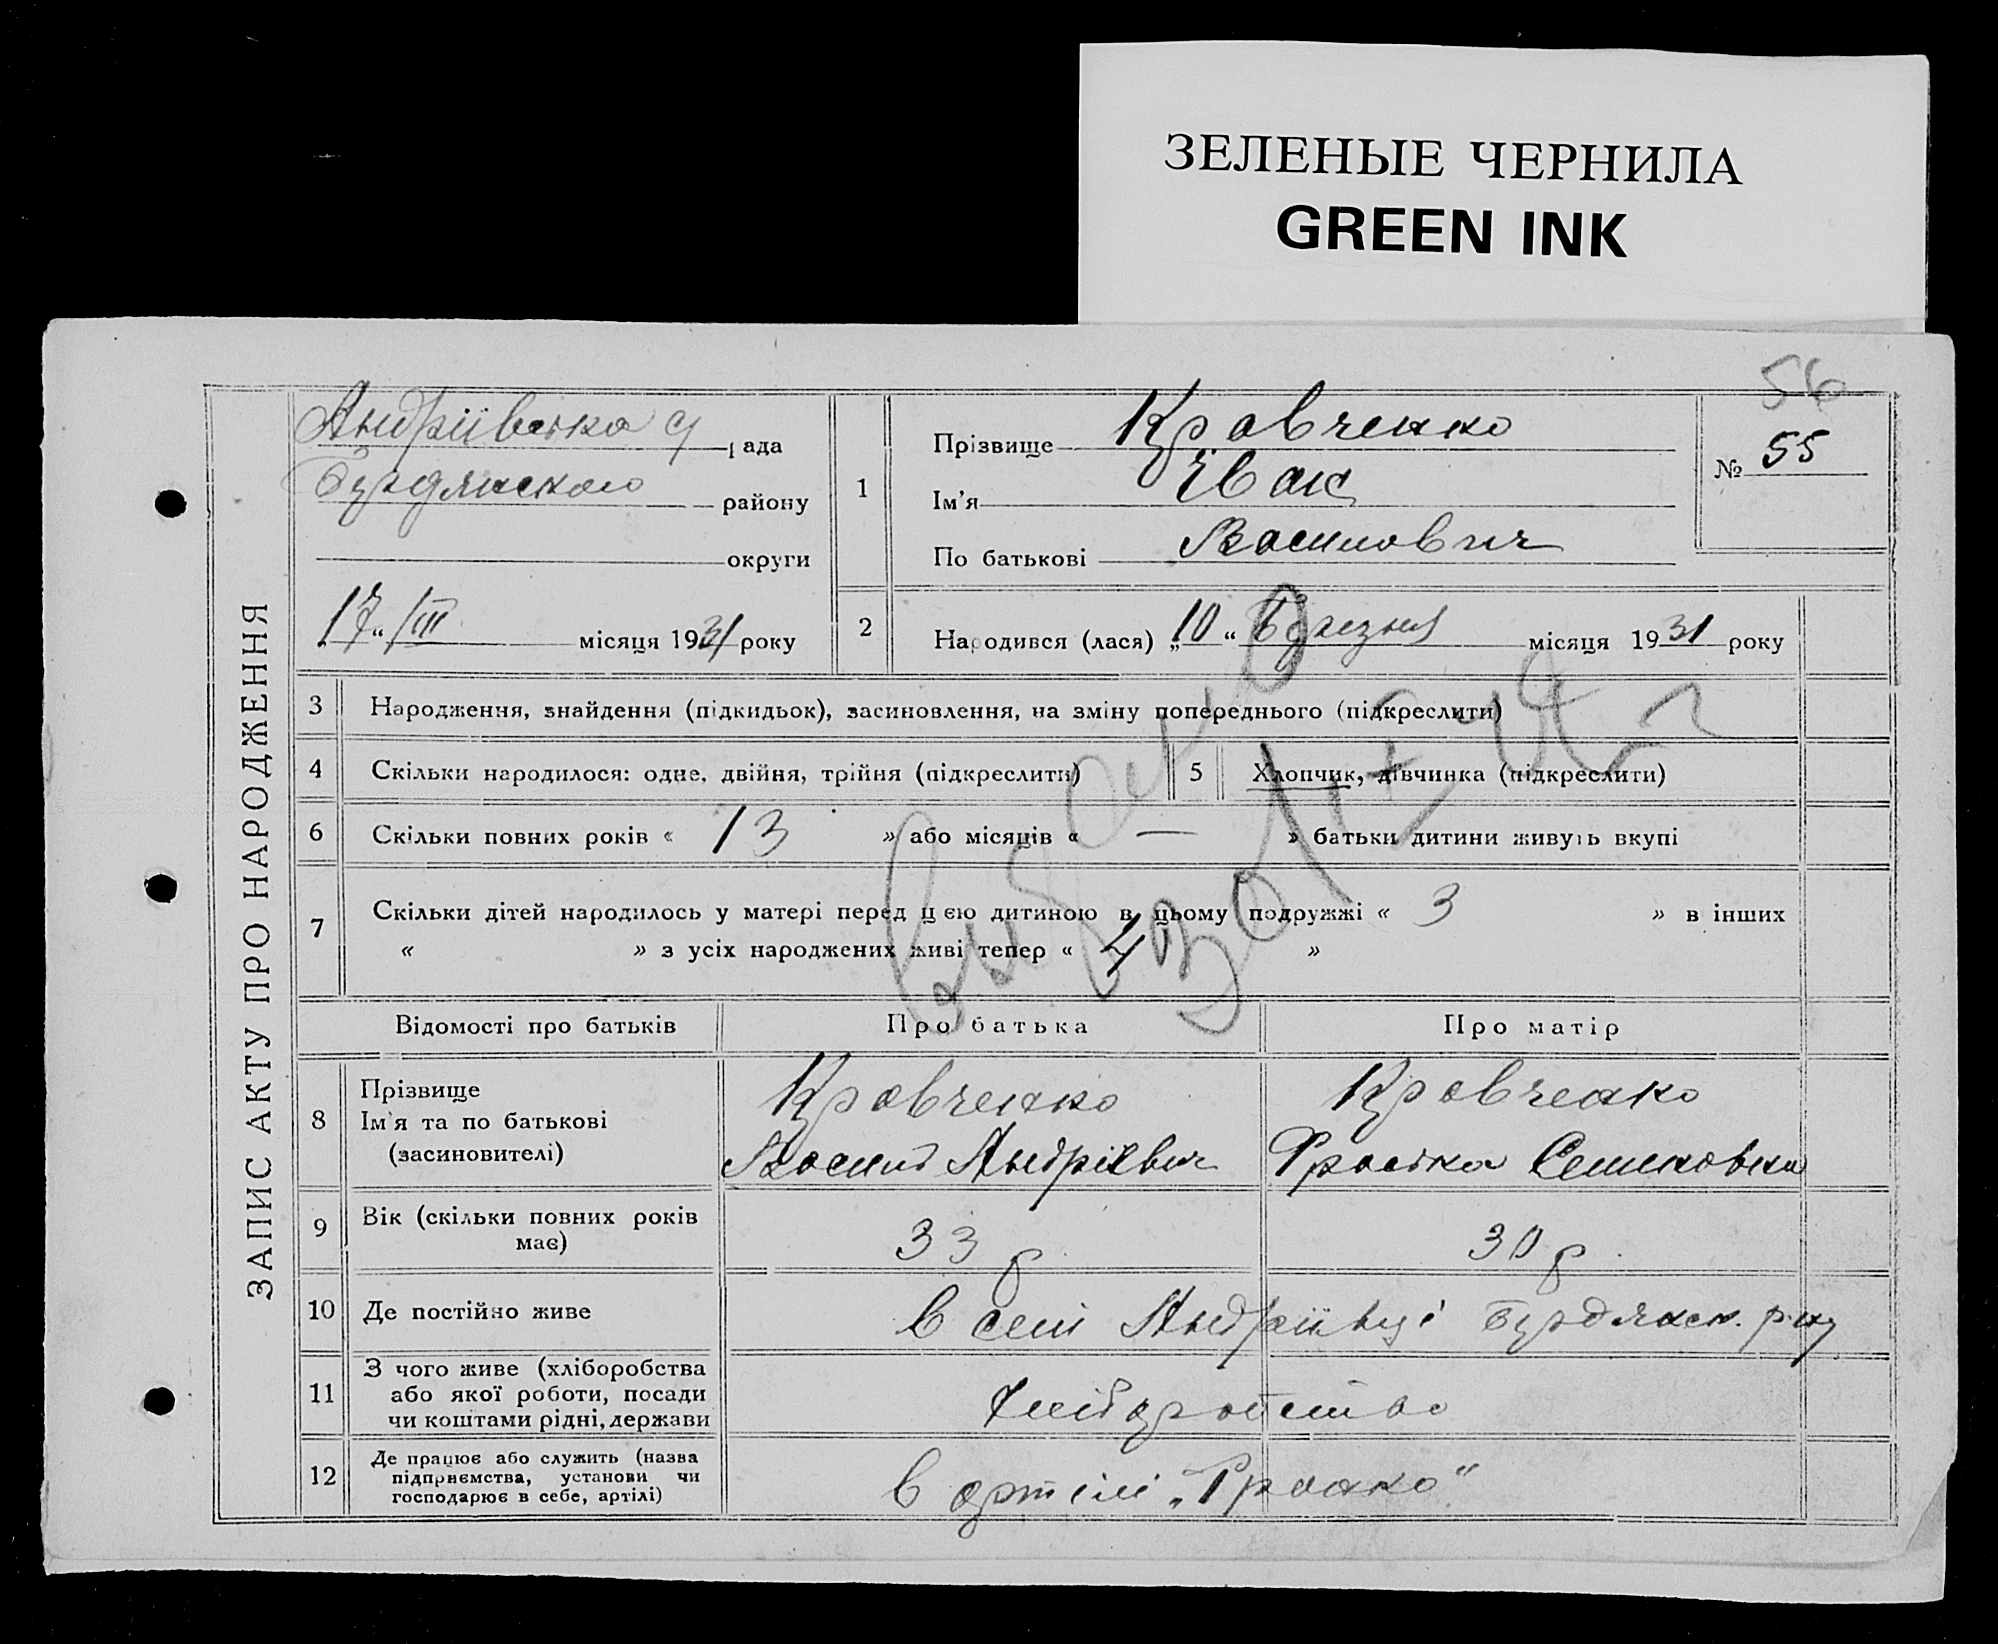 ЗЕЛЕНЫЕ ЧЕРНИЛА
GREEN INK
56
ЗАПИС АКТУ ПРО НАРОДЖЕННЯ
Андріївська с/рада
Бердянського району
округи
17 " /III місяця 1931 року
1
Прізвище Кравченко
Ім'я Іван
По батькові Василович
№ 55
2
Народився (лася) „10 “ березня місяця 1931 року
3 Народження, знайдення (підкидьок), засиновлення, на зміну попереднього (підкреслити)
4 Скільки народилося: одне, двійня, трійня (підкреслити)
5 Хлопчик, дівчинка (підкреслити)
6 Скільки повних років « 13 » або місяців « — » батьки дитини живуть вкупі
7 Скільки дітей народилось у матері перед цією дитиною в цьому подружжі « 3 » в інших
« » з усіх народжених живі тепер « 4 »
Відомості про батьків
Про батька
Про матір
8 Прізвище
Ім'я та по батькові
(засиновителі)
Кравченко
Василь Андрієвич
Кравченко
Фроська Семеновна
9 Вік (скільки повних років
має)
33 р
30 р.
10 Де постійно живе
в селі Андріївці Бердянськ. р-ну
11 З чого живе (хліборобства
або якої роботи, посади
чи коштами рідні, держави
хліборобство
12 Де працює або служить (назва
підприємства, установи чи
господарює в себе, артілі)
в артілі